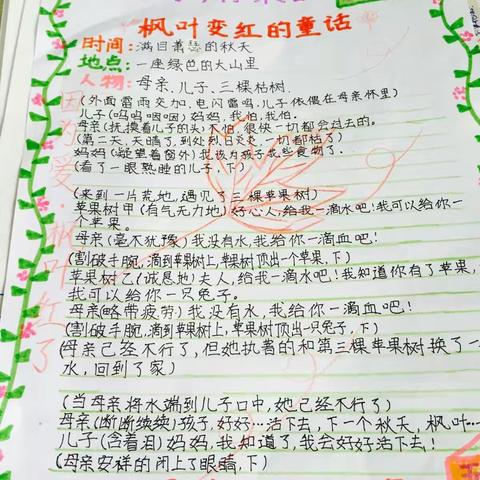 枫叶变红的童话
时间:满目萧瑟的秋天
地点:一座绿色的大山里
人物:母亲、儿子、三棵枯树.
(外面雷雨交加,电闪雷鸣,儿子依偎在母亲怀里)
儿子(呜呜咽咽)妈妈,我怕,我怕.
母亲(抚摸着儿子的头)不怕,很快一切都会过去的。
(第二天,天晴了,到处烈日炎炎,一切都枯了)
妈妈(凝望着窗外)我该为孩子找些食物了.
(看了一眼熟睡的儿子,下)
(来到一片荒地,遇见了三棵苹果树)
苹果树甲(有气无力地)好心人,给我一滴水吧!我可以给你一
个苹果。
母亲(毫不犹豫)我没有水,我给你一滴血吧!
(割破手腕,滴到苹果树上,苹果树顶出一个苹果,下)
苹果树乙(诚恳地)夫人,给我一滴水吧!我知道你有了苹果,
我可以给你一只兔子。
母亲(略带疲劳)我没有水,我给你一滴血吧!
(割破手腕,滴到苹果树上,苹果树顶出一只兔子,下)
(母亲已经不行了,但她执著的和第三棵苹果树换了一
水,回到了家)
(当母亲将水端到儿子口中,她已经不行了)
母亲(断断续续)孩子,好好…活下去,下一个秋天,枫叶…
儿子(含着泪)妈妈,我知道了,我会好好活下去!
(母亲安祥的闭上了眼睛,下)
因为爱·枫叶红了